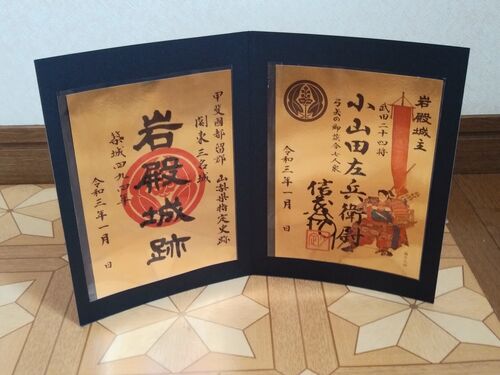 岩殿城主
武田二十四将
小山田左兵衛尉
信茂
弓矢の御談合七人衆
令和三年一月　日
甲斐國都留郡　山梨県指定史跡
関東三名城
岩殿城跡
築城四九四年
令和三年一月　日